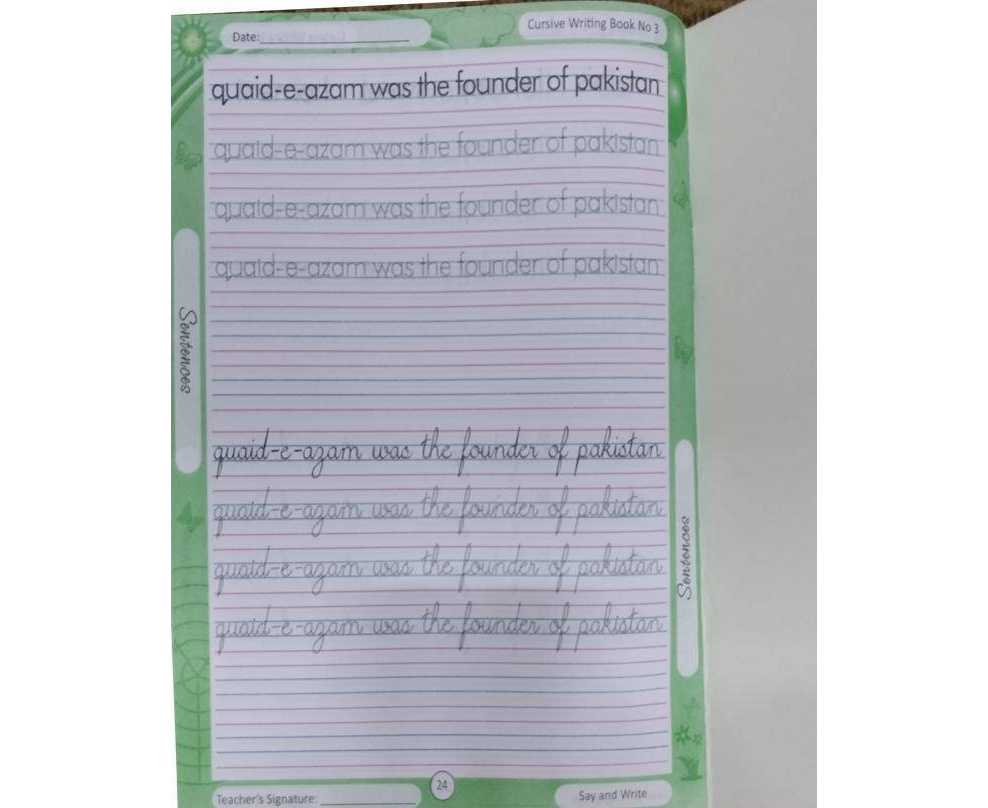 Date:
Cursive Writing Book No 3
quaid-e-azam was the founder of pakistan
quaid-e-azam was the founder of pakistan
quaid-e-azam was the founder of pakistan
quaid-e-azam was the founder of pakistan
Sentences
quaid-e-azam was the founder of pakistan
quaid-e-azam was the founder of pakistan
quaid-e-azam was the founder of pakistan
quaid-e-azam was the founder of pakistan
Sentences
Teacher's Signature:
24
Say and Write